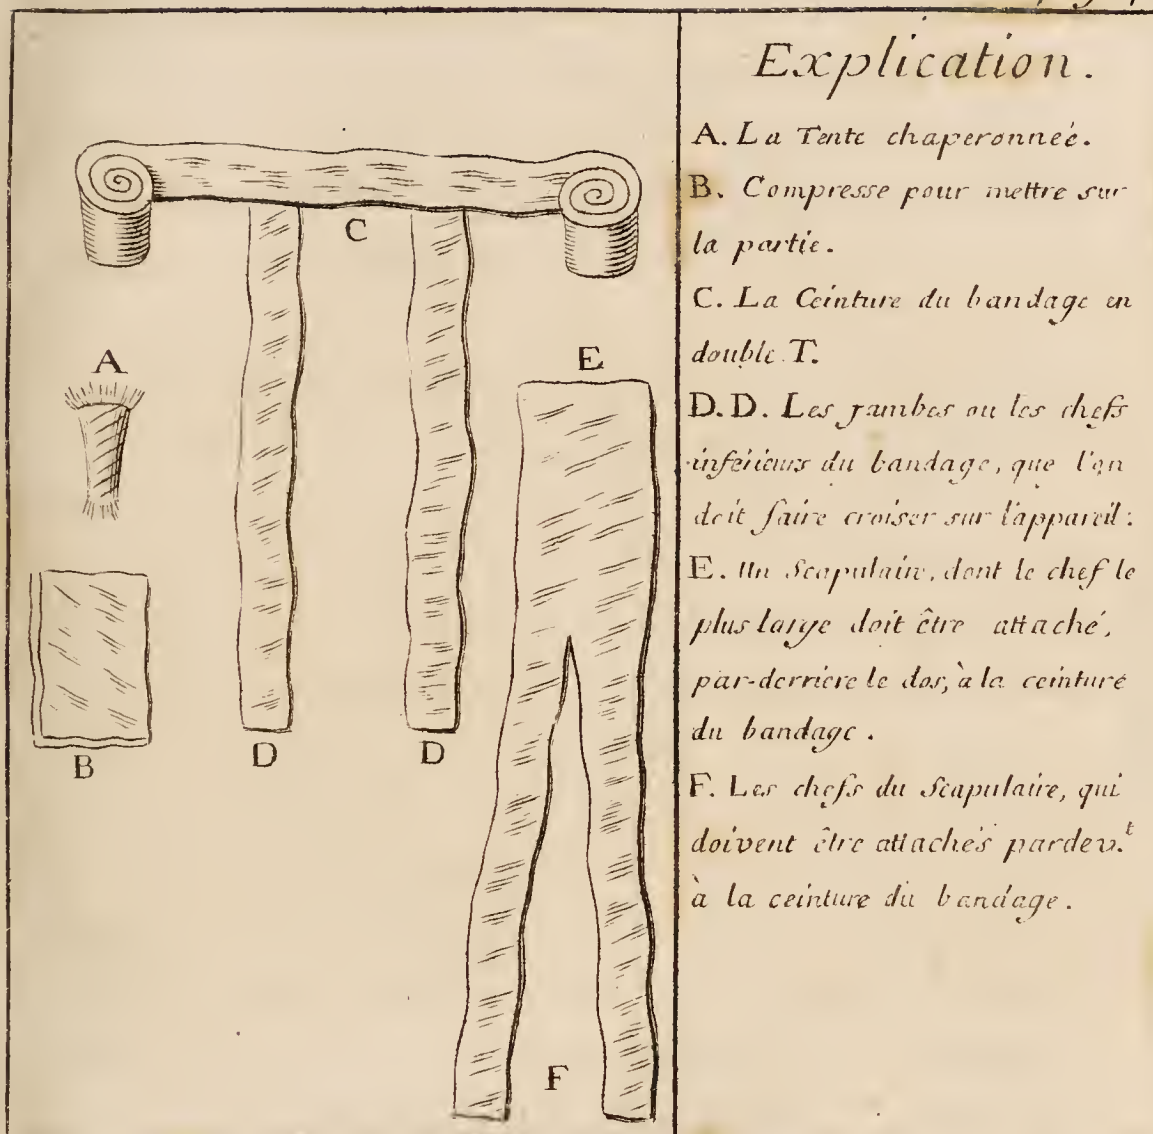 Explication.
A. La Tente chaperonneé.
B. Compresse pour mettre sur
la partie.
C. La Ceinture du bandage en
double T.
D. D. Les jambes ou les chefs
inférieurs du bandage, que l'on
doit faire croiser sur l'appareil:
E. Un Scapulaire, dont le chef le
plus large doit être attaché,
par-derriere le dos, à la ceinture
du bandage.
F. Les chefs du Scapulaire, qui
doivent être attachés pardev.t
à la ceinture du bandage.
C
A
E
B
D
D
F